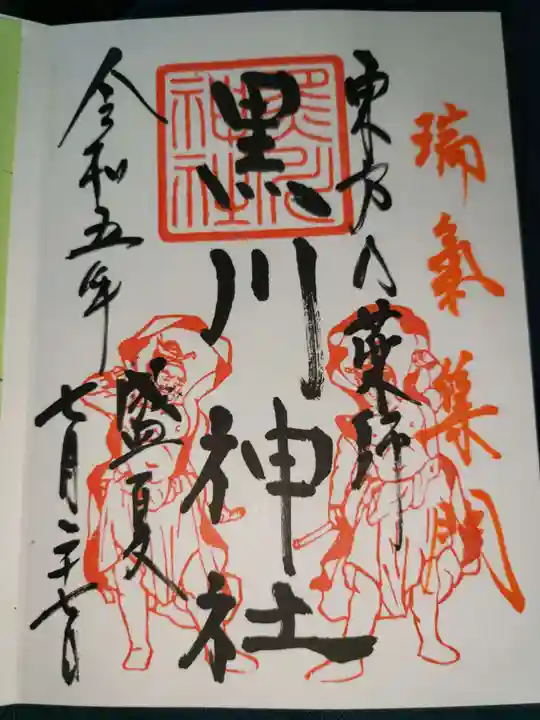 瑞氣集門
東方乃薬師
黒川神社
黒川神社
盛夏
令和五年
七月二十七日